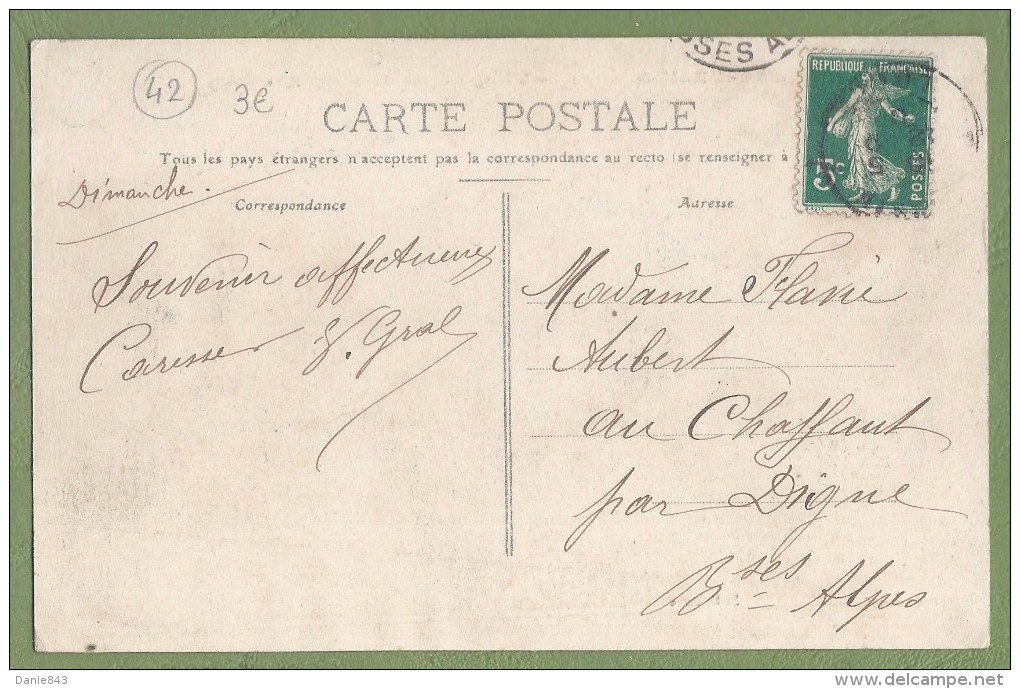 42
3€
CARTE POSTALE
Tous les pays étrangers n'acceptent pas la correspondance au recto (se renseigner à
Dimanche.
Correspondance
Souvenir affectueux
Caresses
Gral
Adresse
REPUBLIQUE FRANÇAISE
5c
POSTES
Madame Flavie
Aubert
au Chaffaut
par Digne
Bses Alpes
Danie843
delcampe.net